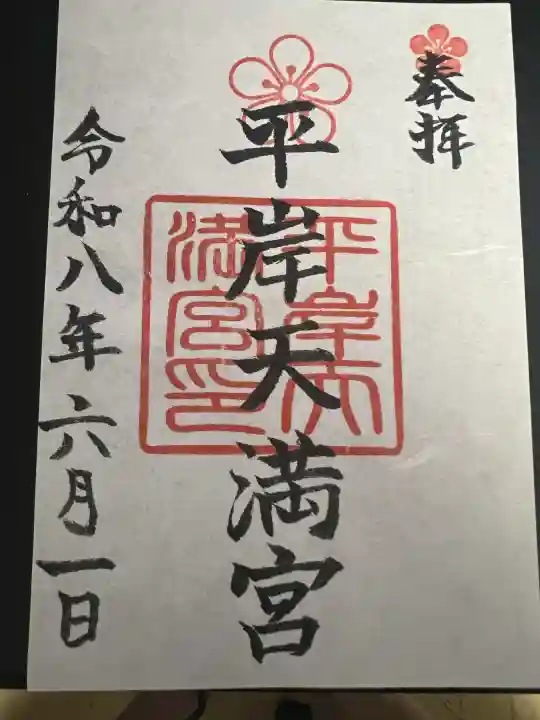 奉拝
平岸天満宮
平岸天
満宮印
令和八年六月一日